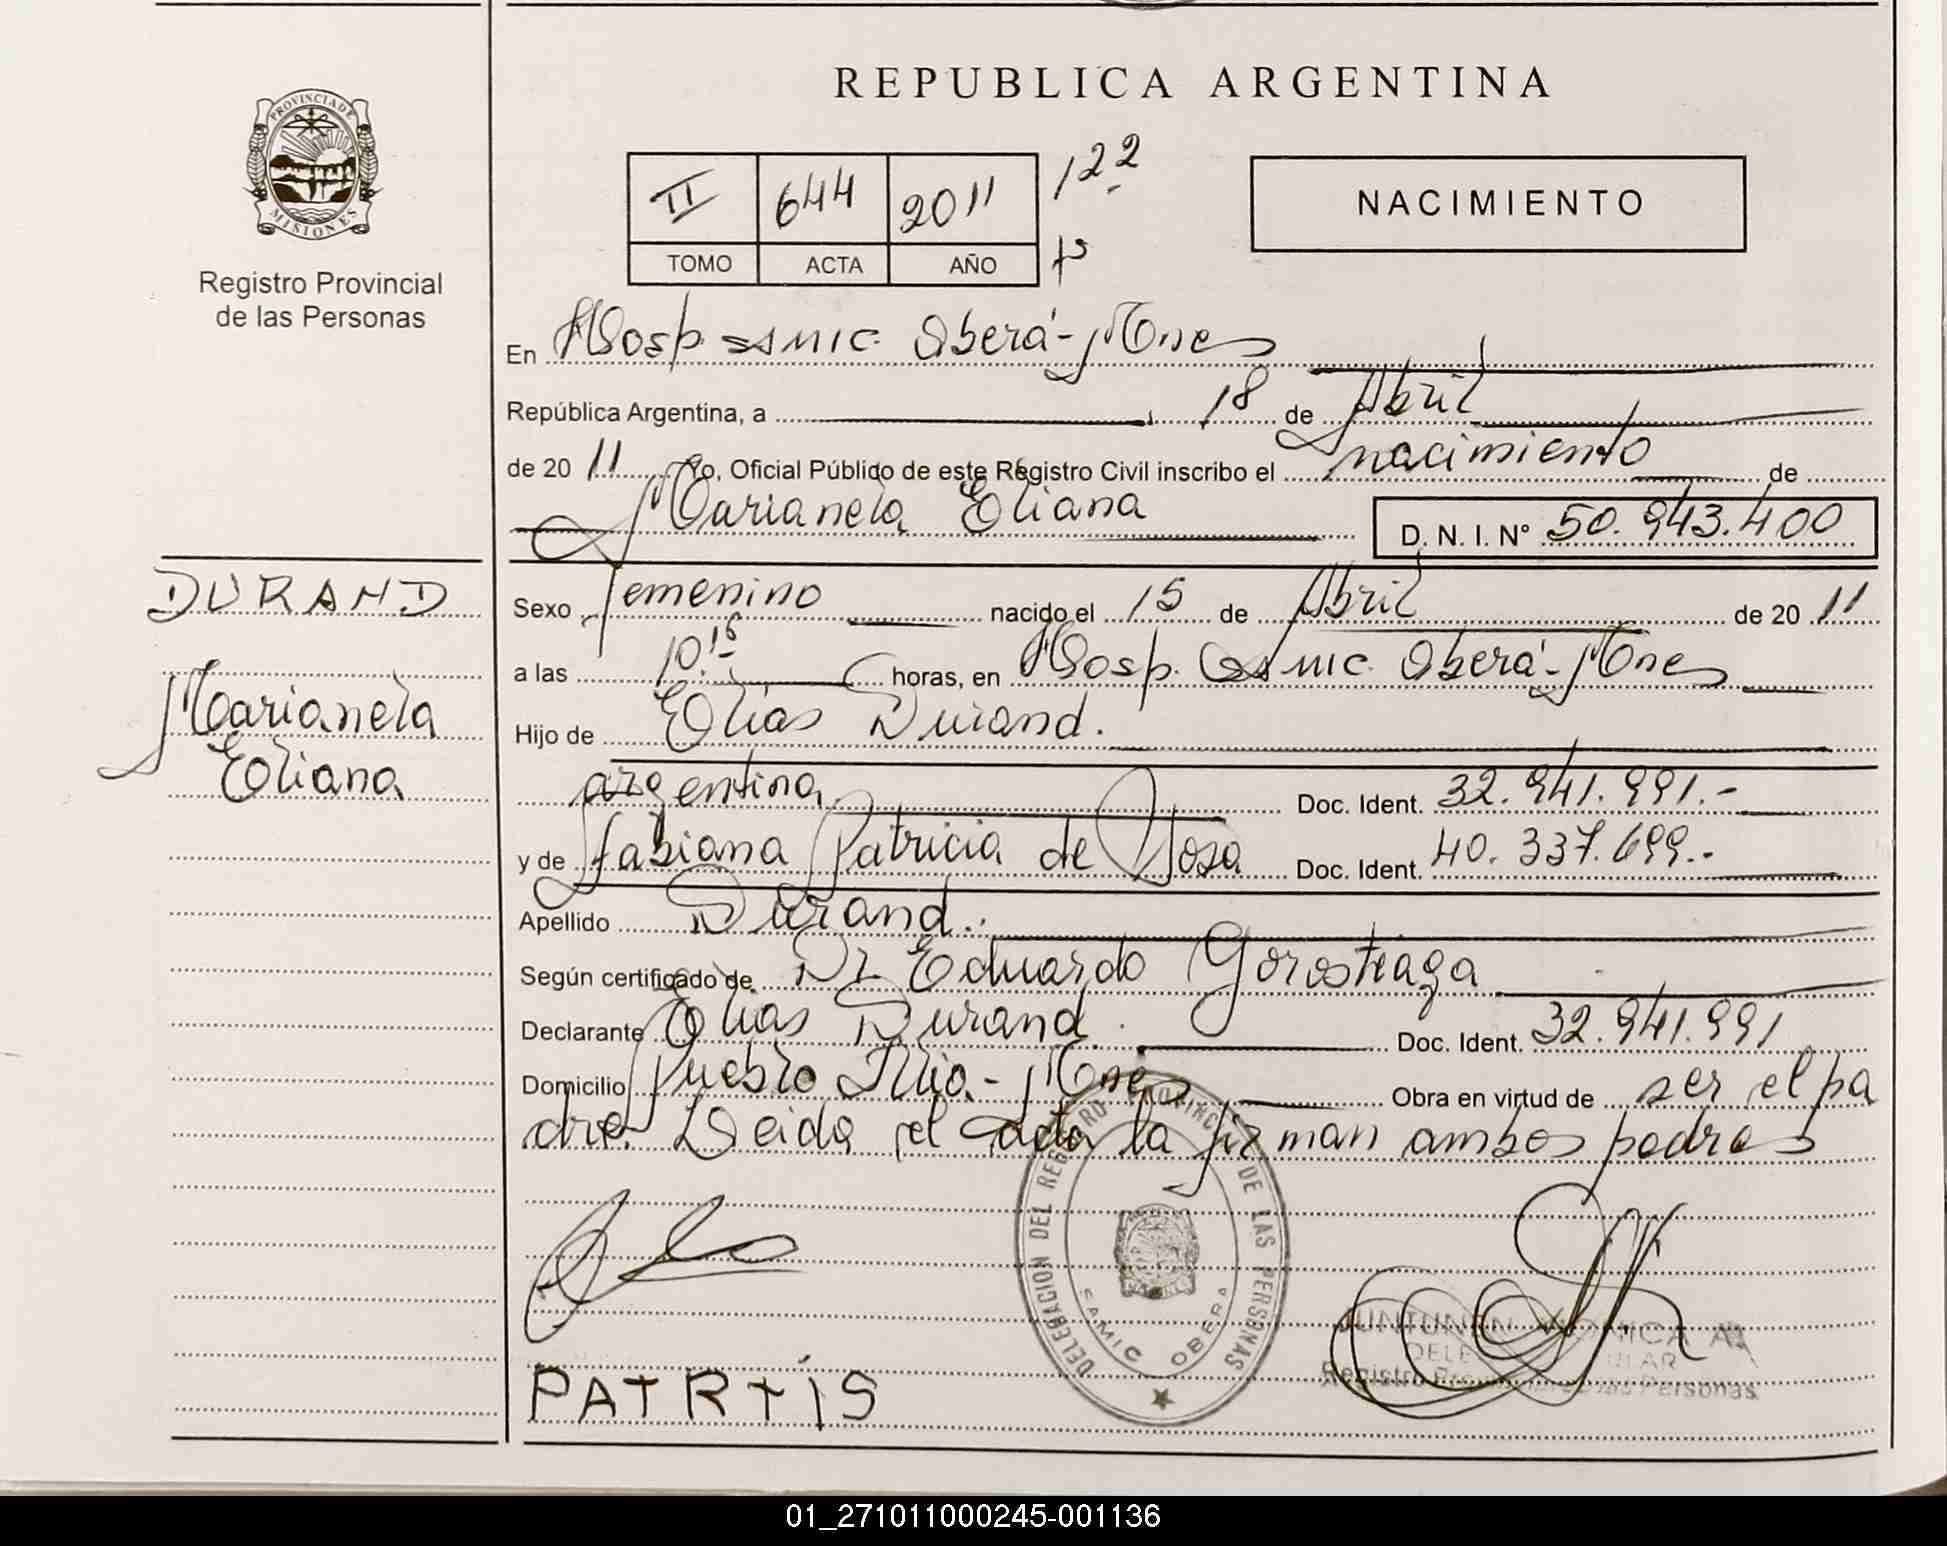 REPUBLICA ARGENTINA
PROVINCIA DE
MISIONES
Registro Provincial
de las Personas
II 644 2011 122
TOMO ACTA AÑO fs
NACIMIENTO
En Hosp. SAMIC. Oberá-Mnes
República Argentina, a 18 de Abril
de 20 11 Yo, Oficial Público de este Registro Civil inscribo el nacimiento de
Marianela Eliana D. N. I. N° 50.943.400
DURAND
Marianela
Eliana
Sexo femenino nacido el 15 de Abril de 20 11
a las 10.15 horas, en Hosp. Samic. Oberá-Mnes
Hijo de Elias Durand.
argentina Doc. Ident. 32.941.991.-
y de fabiana Patricia de Doc. Ident. 40.337.699.-
Apellido Durand.
Según certificado de Dr Eduardo Gorosteaga
Declarante Elias Durand. Doc. Ident. 32.941.991
Domicilio Pueblo Illia.-Mnes Obra en virtud de ser el pa
dre. Leida el acta la firman ambos padres
DELEGACION DEL REGISTRO PROVINCIAL DE LAS PERSONAS
SAMIC OBERA
JUNTUNEN MONICA A.
Registro Provincial de las Personas
01_271011000245-001136